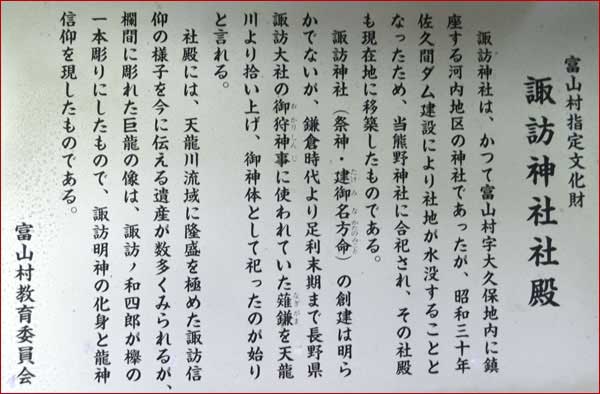 富山村指定文化財
諏訪神社社殿
諏訪神社は、かつて富山村字大久保地内に鎮
座する河内地区の神社であったが、昭和三十年
佐久間ダム建設により社地が水没することと
なったため、当熊野神社に合祀され、その社殿
も現在地に移築したものである。
諏訪神社（祭神・建御名方命）の創建は明ら
かでないが、鎌倉時代より足利末期まで長野県
諏訪大社の御狩神事に使われていた薙鎌を天龍
川より拾い上げ、御神体として祀ったのが始り
と言れる。
社殿には、天龍川流域に隆盛を極めた諏訪信
仰の様子を今に伝える遺産が数多くみられるが、
欄間に彫れた巨龍の像は、諏訪ノ和四郎が欅の
一本彫りにしたもので、諏訪明神の化身と龍神
信仰を現したものである。
富山村教育委員会